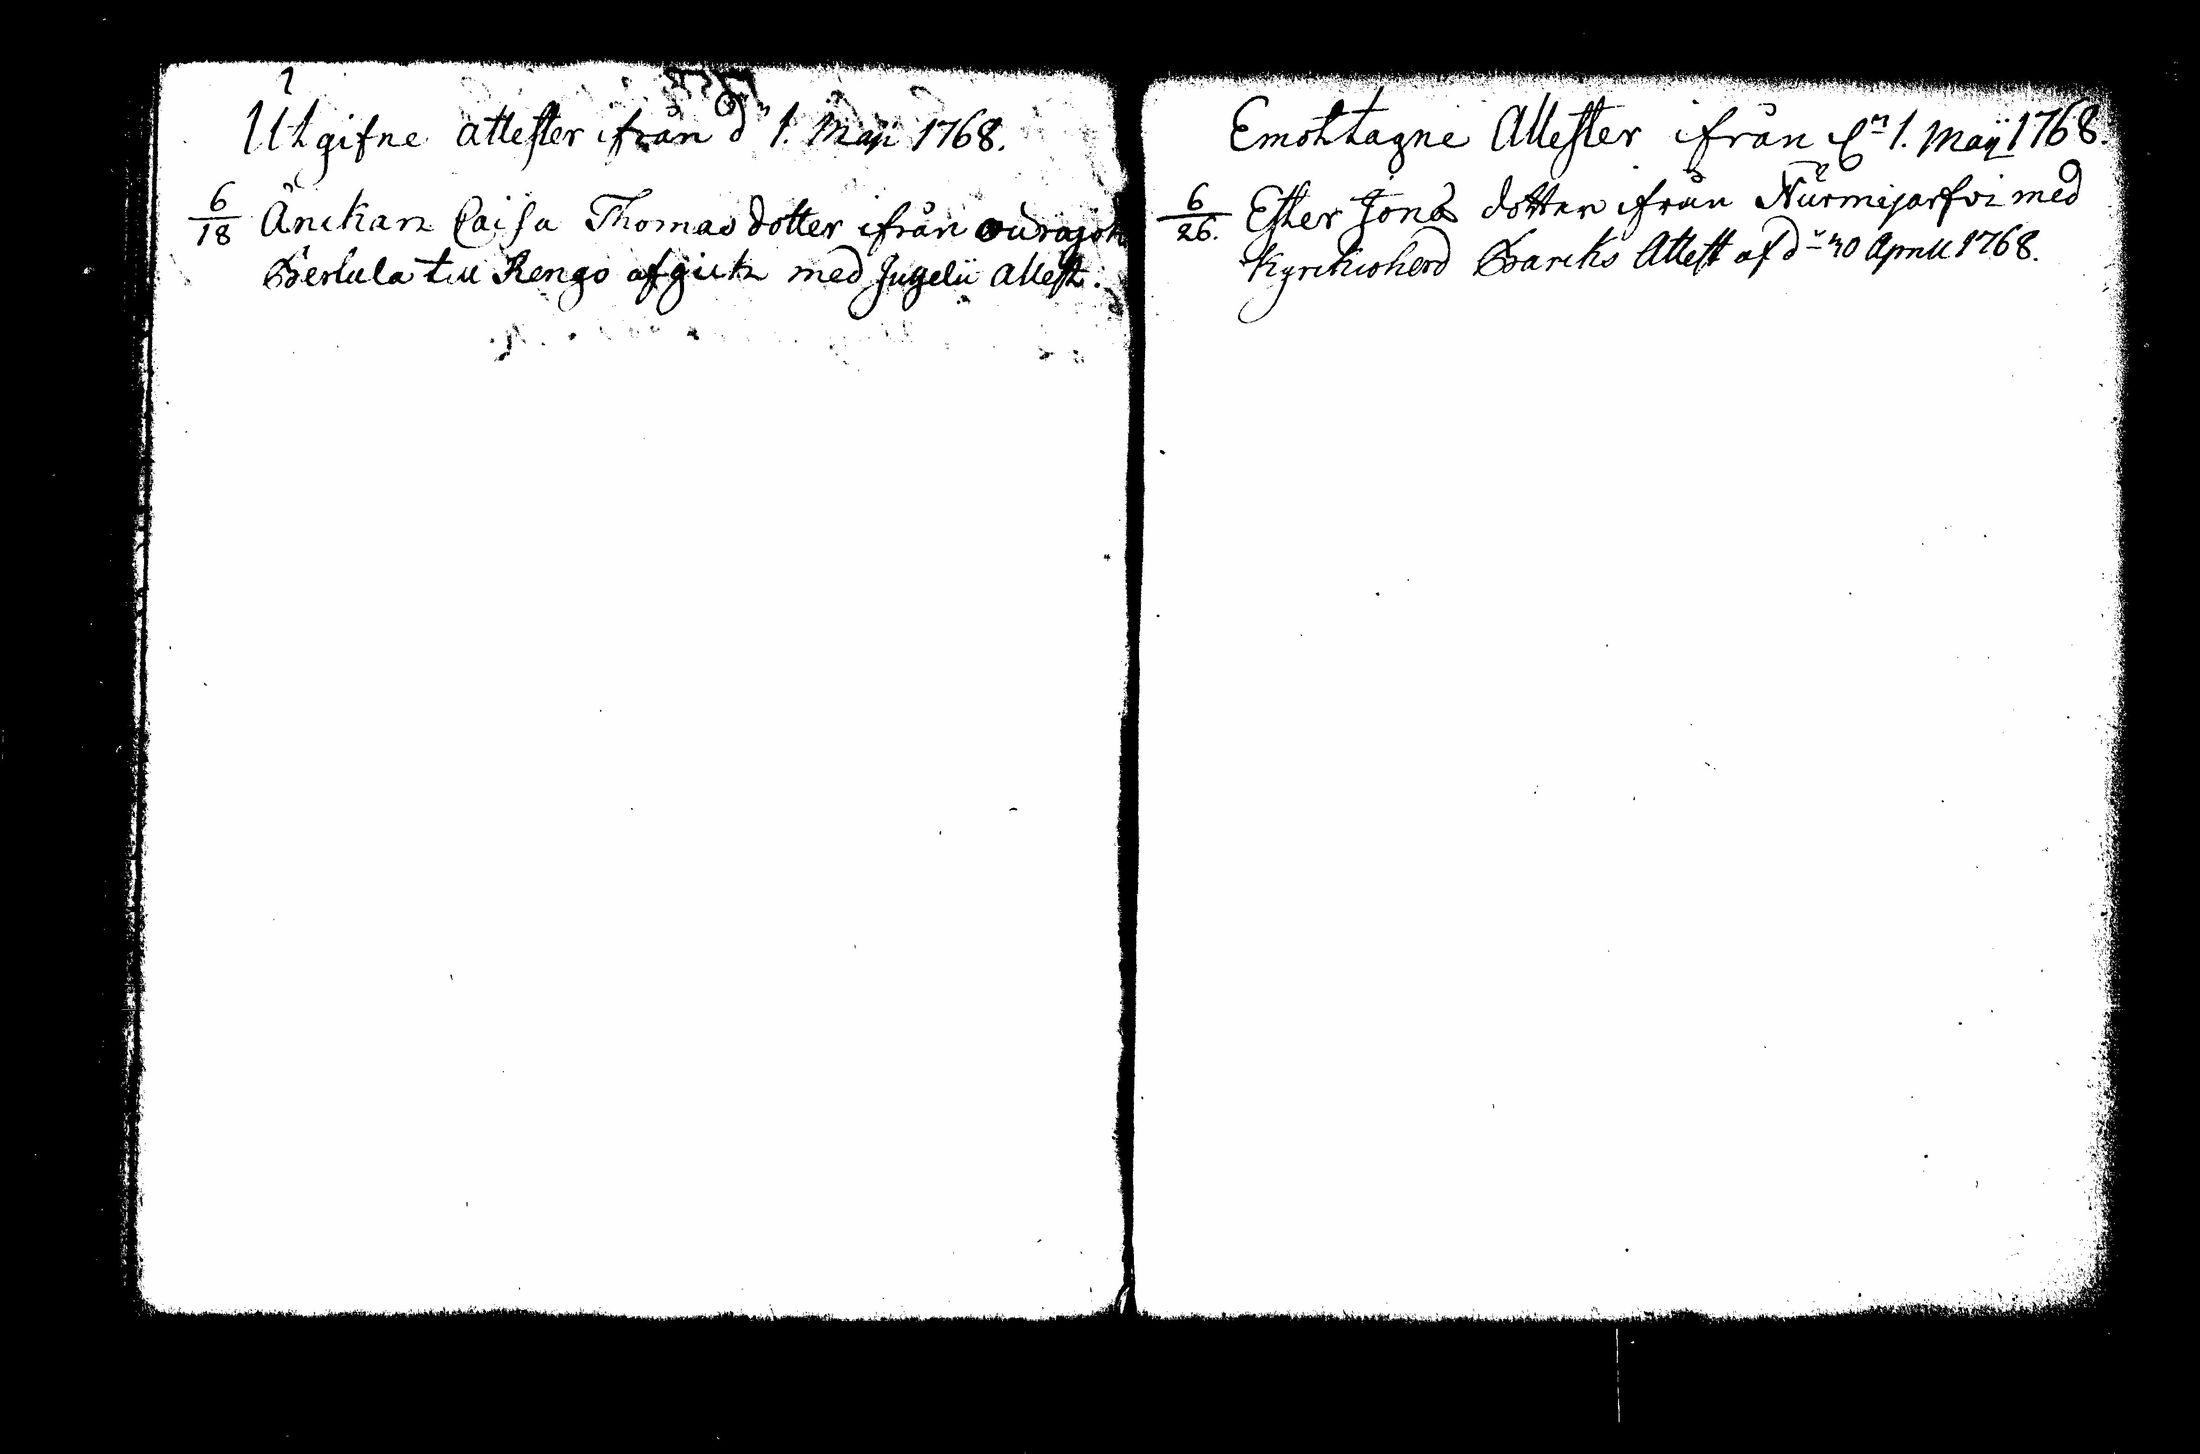 Utgifne attester ifrån d 1. Maji 1768.
6/18 Änckan Caisa Thomas dotter ifrån
Berlula till Rengo afgick med Attest.
Emottagne Attester ifrån 1. Maij 1768.
6/26. Esther Jonas dotter ifrån Nurmijarfvi med
Kyrckioherd Barcks Attest af d 30 Aprill 1768.